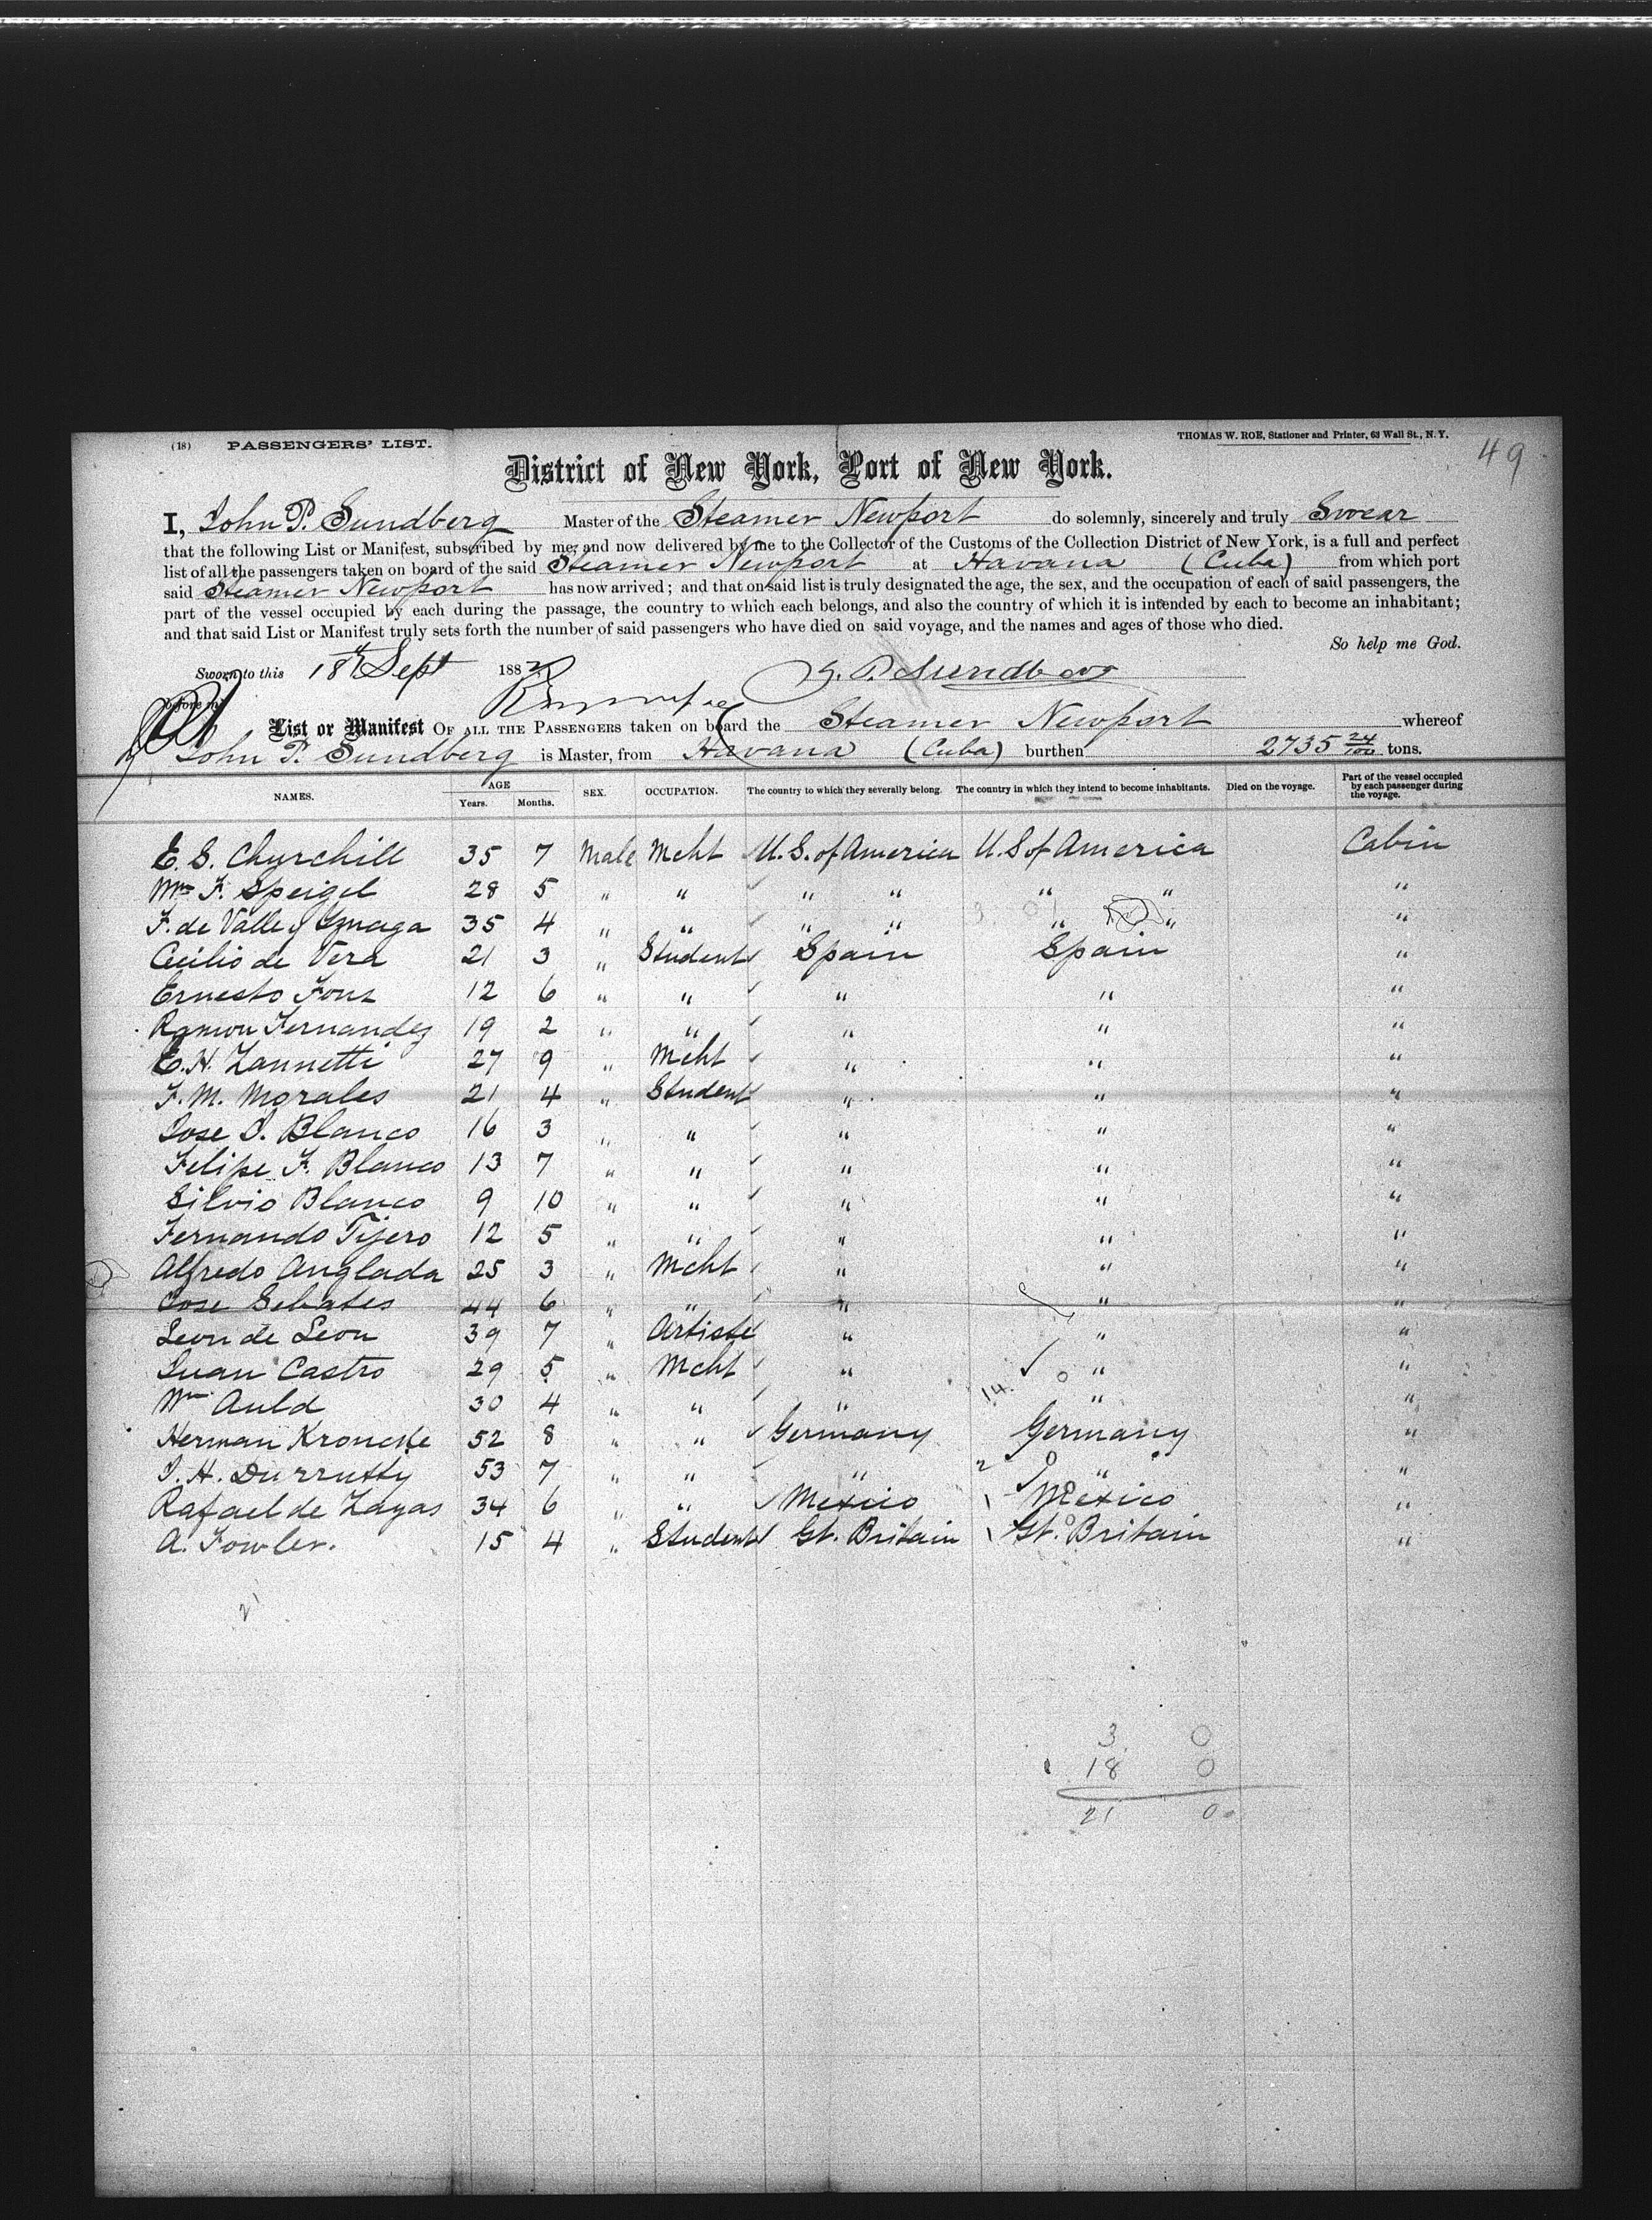 (18) PASSENGERS' LIST. THOMAS W. ROE, Stationer and Printer, 63 Wall St., N. Y.
49
District of New York, Port of New York.
I, John P. Sundberg Master of the Steamer Newport do solemnly, sincerely and truly Swear
that the following List or Manifest, subscribed by me, and now delivered by me to the Collector of the Customs of the Collection District of New York, is a full and perfect
list of all the passengers taken on board of the said Steamer Newport at Havana (Cuba) from which port
said Steamer Newport has now arrived; and that on said list is truly designated the age, the sex, and the occupation of each of said passengers, the
part of the vessel occupied by each during the passage, the country to which each belongs, and also the country of which it is intended by each to become an inhabitant;
and that said List or Manifest truly sets forth the number of said passengers who have died on said voyage, and the names and ages of those who died.
So help me God.
Sworn to this 18th Sept 188 J. P. Sundberg
before me
List or Manifest OF ALL THE PASSENGERS taken on board the Steamer Newport whereof
John P. Sundberg is Master, from Havana (Cuba) burthen 2735 24/100 tons.
NAMES. AGE Years. Months. SEX. OCCUPATION. The country to which they severally belong. The country in which they intend to become inhabitants. Died on the voyage. Part of the vessel occupied by each passenger during the voyage.
E. S. Churchill 35 7 Male Mcht U.S. of America U.S of America Cabin
Mrs F. Speigel 28 5 " " " " " " "
F. de Valle y 35 4 " " " " " " "
Cecilio de Vera 21 3 " Student Spain Spain "
Ernesto Fonz 12 6 " " " " "
Ramon Fernandez 19 2 " " " " "
E. H. Zannetti 27 9 " Mcht " " "
F. M. Morales 21 4 " Student " " "
Jose J. Blanco 16 3 " " " " "
Felipe F. Blanco 13 7 " " " " "
Silvio Blanco 9 10 " " " " "
Fernando Tijero 12 5 " " " " "
Alfredo Anglada 25 3 " Mcht " " "
Jose Sebates 44 6 " " " " "
Leon de Leon 39 7 " Artiste " " "
Juan Castro 29 5 " Mcht " " "
Wm Auld 30 4 " " " 14 " "
Herman Kroncke 52 8 " " Germany Germany "
J. H. Durrutty 53 7 " " " 2 " "
Rafael de Zayas 34 6 " " Mexico Mexico "
A. Fowler. 15 4 " Student Gt. Britain Gt. Britain "
21
3 0
18 0
21 0